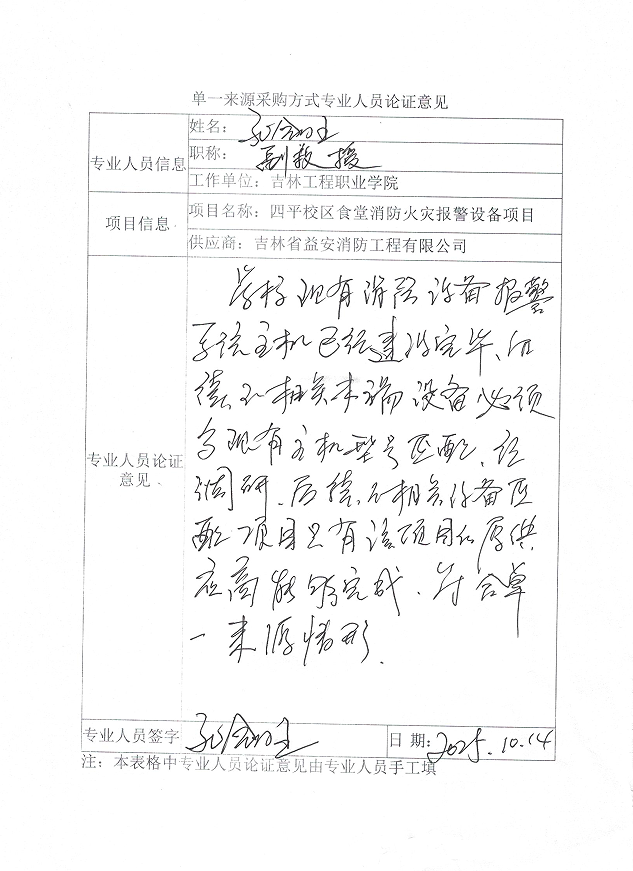 单一来源采购方式专业人员论证意见
专业人员信息
姓名：
职称： 副教授
工作单位：吉林工程职业学院
项目信息
项目名称：四平校区食堂消防火灾报警设备项目
供应商：吉林省益安消防工程有限公司
专业人员论证
意见
学校现有消防设备报警
系统主机已经建设完毕、后
续的相关末端设备必须
与现有主机型号匹配、经
调研、后续的相关设备匹
配项目只有该项目的原供
应商能够完成、符合单
一来源情形.
专业人员签字
日期: 2025.10.14
注：本表格中专业人员论证意见由专业人员手工填